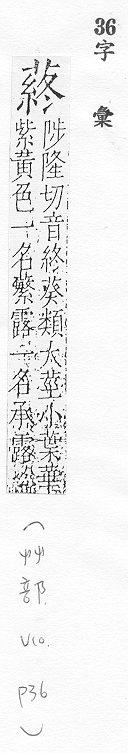 36字彙
蔠
陟隆切音終葵類大莖小葉華
紫黃色一名蘩露一名承露
(艸部. V10. P36)